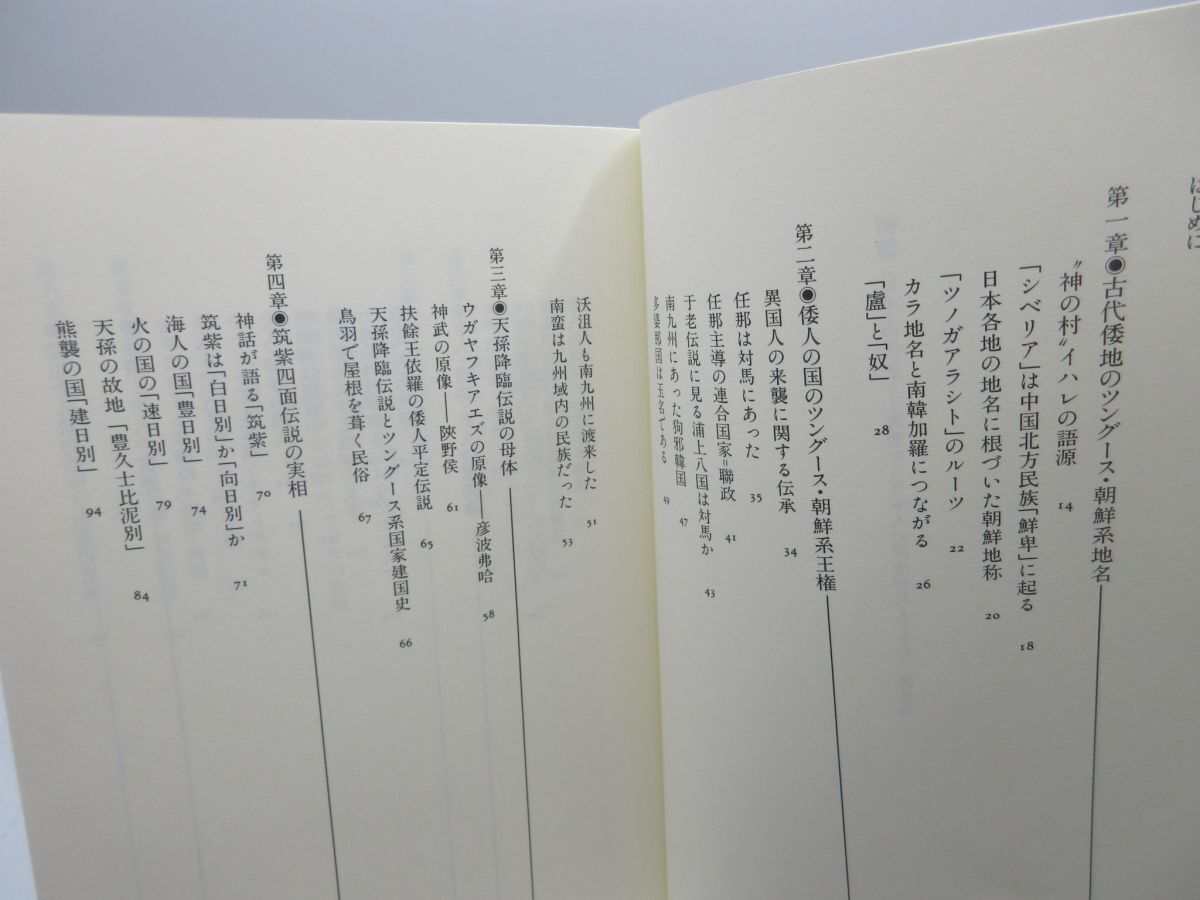 はじめに
第一章◉古代倭地のツングース・朝鮮系地名
〝神の村〟イハレの語源 14
「シベリア」は中国北方民族「鮮卑」に起る 18
日本各地の地名に根づいた朝鮮地称 20
「ツノガアラシト」のルーツ 22
カラ地名と南韓加羅につながる 26
「盧」と「奴」 28
第二章◉倭人の国のツングース・朝鮮系王権
異国人の来襲に関する伝承 34
任那は対馬にあった 35
任那主導の連合国家〓聯政 41
于老伝説に見る浦上八国は対馬か 43
南九州にあった狗邪韓国 47
多婆那国は玉名である 49
沃沮人も南九州に渡来した 51
南蛮は九州域内の民族だった 53
第三章◉天孫降臨伝説の母体
ウガヤフキアエズの原像——彦波弗哈 58
神武の原像——陜野侯 61
扶餘王依羅の倭人平定伝説 65
天孫降臨伝説とツングース系国家建国史 66
鳥羽で屋根を葺く民俗 67
第四章◉筑紫四面伝説の実相
神話が語る「筑紫」 70
筑紫は「白日別」か「向日別」か 71
海人の国「豊日別」 74
火の国の「速日別」 79
天孫の故地「豊久士比泥別」 84
熊襲の国「建日別」 94